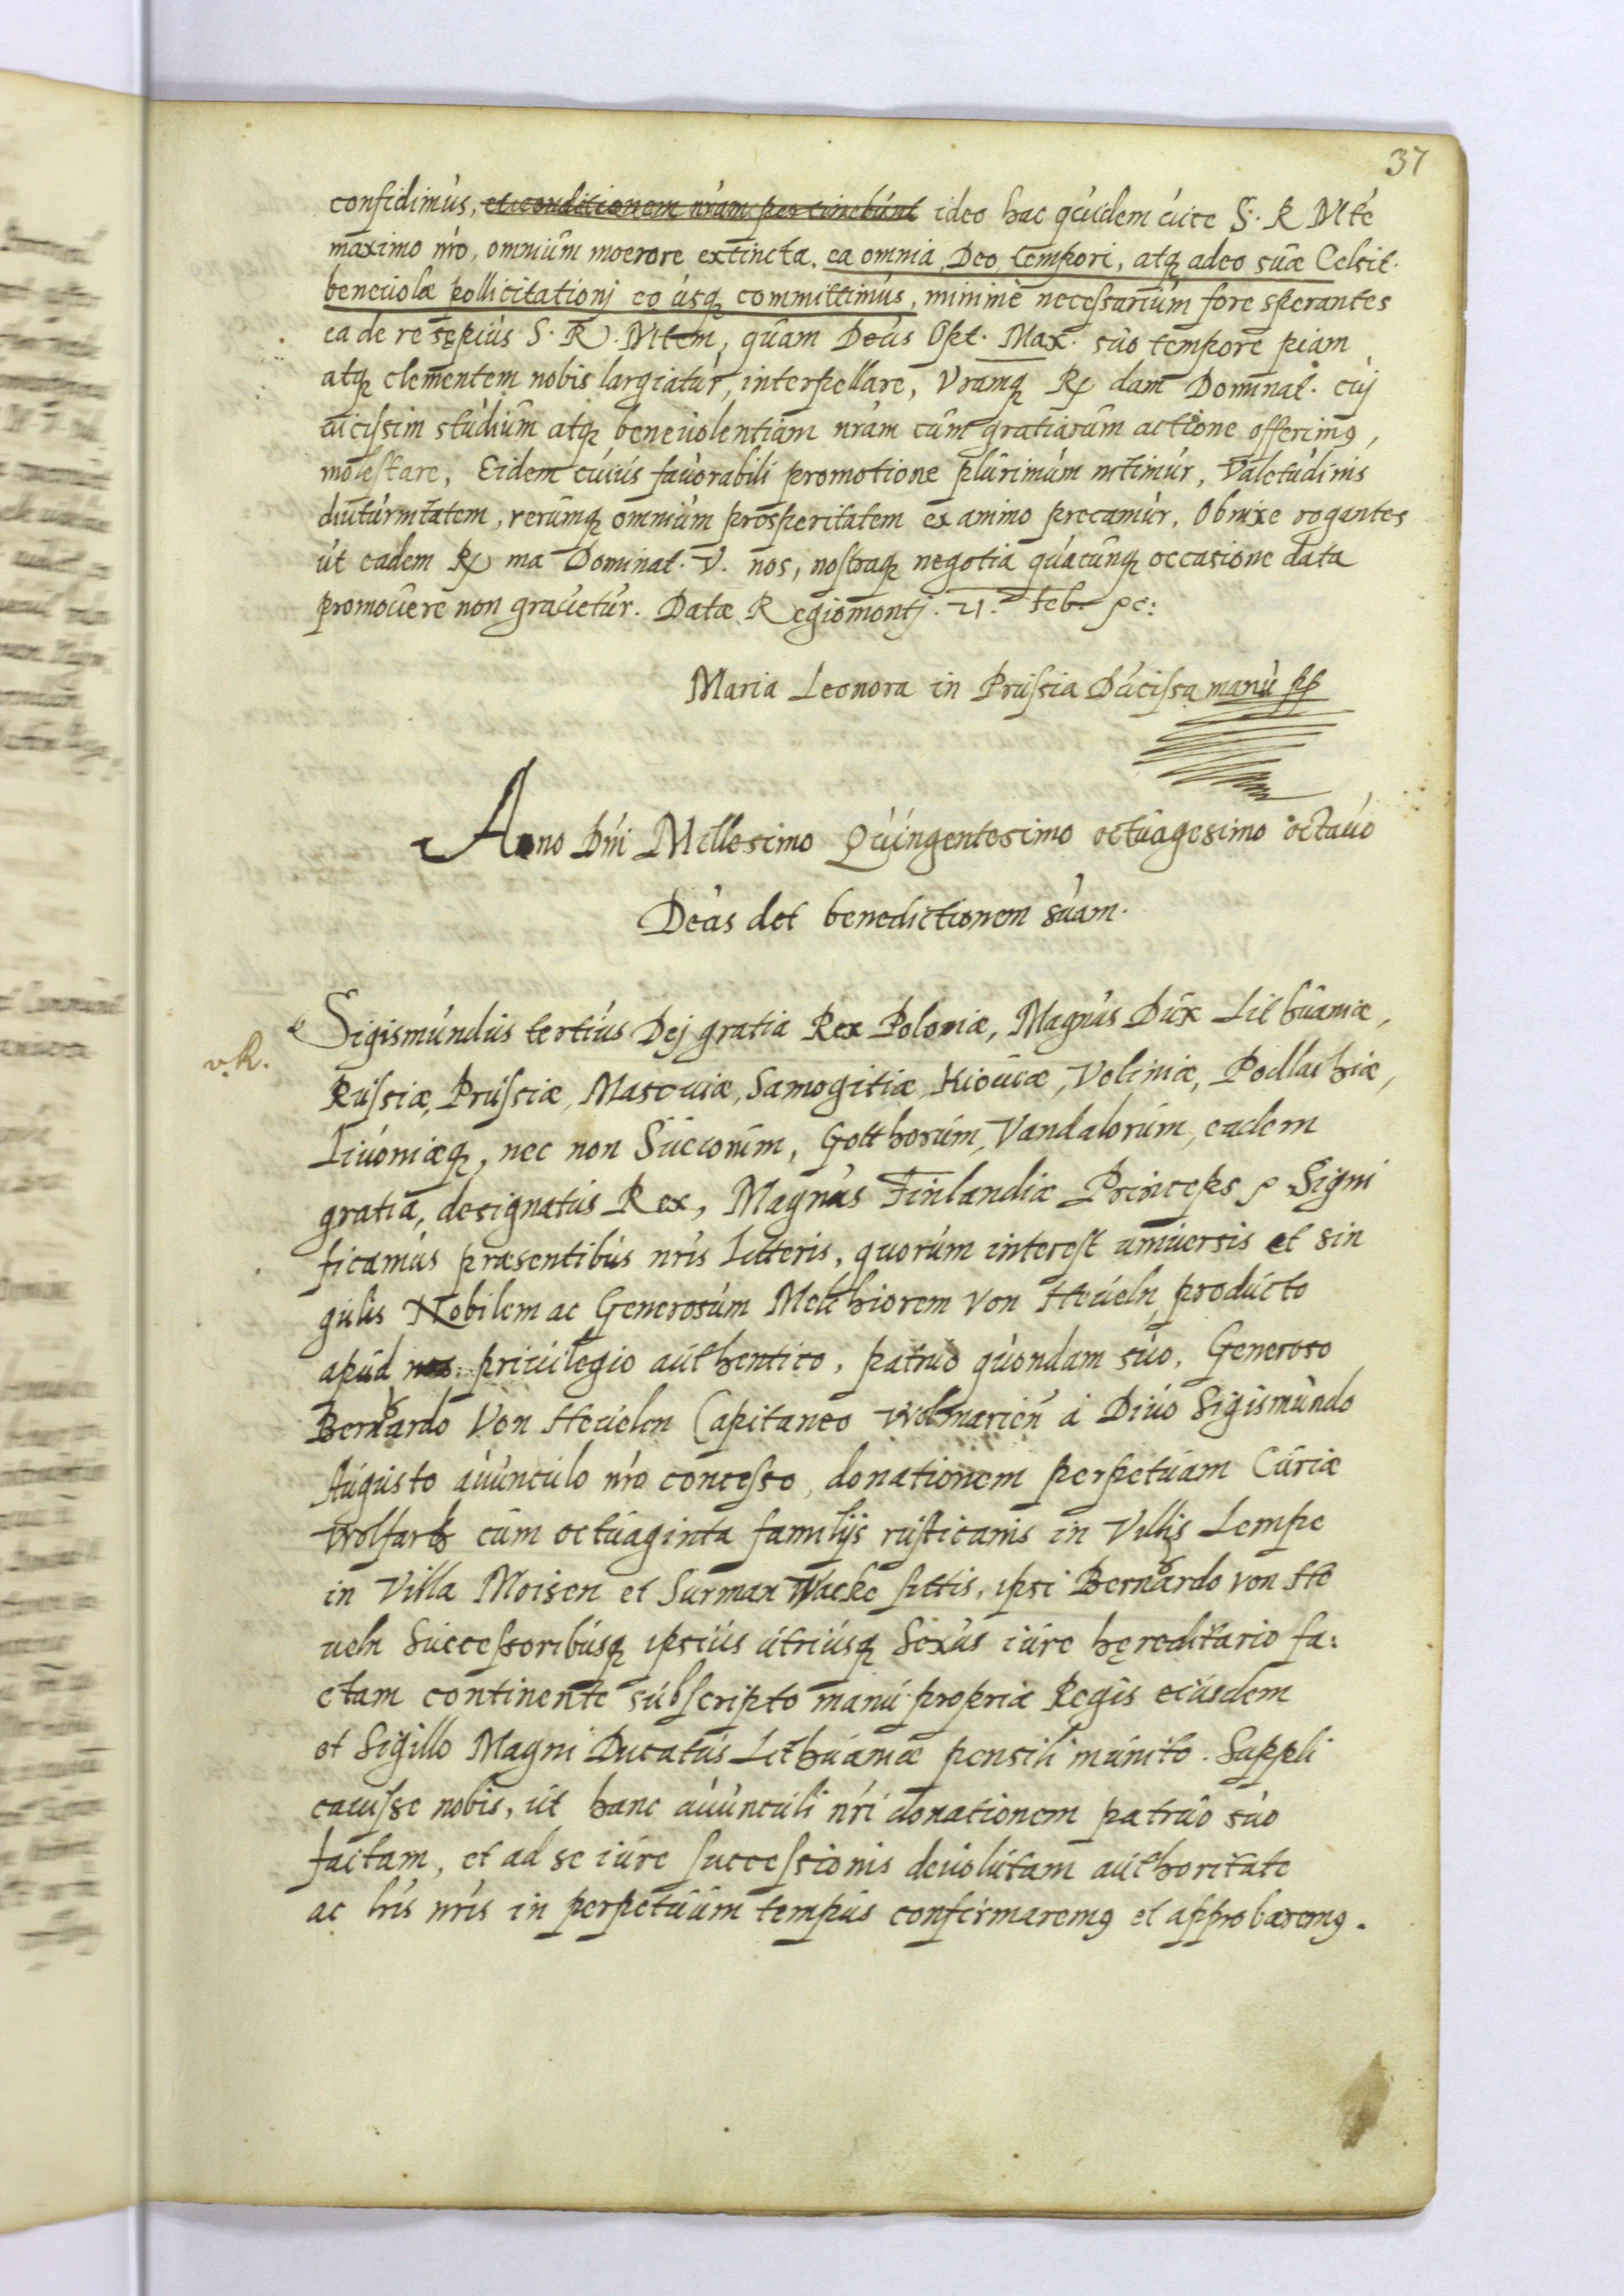 37
confidimus, et conditionem nram percurebunt ideo hac quidem vice S. R Mte
maximo nro, omnium moerore extincta. ea omnia, Deo, tempori, atq adeo suæ Celsit.
beneuolæ pollicitationj eo usq committimus, minime necessarium fore sperantes
ea de re sępius S. R. Mtem, quam Deus Opt. Max. suo tempore piam
atq clementem nobis largiatur, interpellare, Vramq R dam Dominat. cuj
vicissim studium atq beneuolentiam nram cum gratiarum actione offerimus,
molestare, Eidem cuius fauorabili promotione plurimum nitimur, Valetudinis
diuturnitatem, rerumq omnium prosperitatem ex animo precamur, Obnixe rogantes
ut eadem R ma Dominat. V. nos, nostraq negotia quacunq occasione data
promouere non grauetur. Datæ Regiomontj. 21. Feb. pc:
Maria Leonora in Prussia Ducissa manu pp
Anno Dni Millesimo Quingentesimo octuagesimo octauo
Deus det benedictionem suam.
Sigismundus tertius Dej gratia Rex Poloniæ, Magnus Dux Lithuaniæ,
v.k.
Russiæ, Prussiæ, Masouiæ, Samogitiæ, Kiouiæ, Voliniæ, Podlachiæ,
Liuoniæq, nec non Sueconum, Gotthorum, Vandalorum, eadem
gratia, designatus Rex, Magnus Finlandiæ Princeps p Signi
ficamus præsentibus nris Litteris, quorum interest uniuersis et sin
gulis Nobilem ac Generosum Melchiorem von Heueln producto
apud nos priuilegio authentico, patruo quondam suo, Generoso
Bernhardo Von Heuelen Capitaneo Wolmarien a Diuo Sigismundo
Augusto auunculo nro concesso, donationem perpetuam Curiæ
Wolfart cum octuaginta familijs rusticanis in Villis Lempe
in Villa Moisen et Surman Wacke sittis, ipsi Bernhardo von He
ueln Successoribusq ipsius utriusq Sexus iure hęreditario fa:
ctam continente subscripto manu propria Regis eiusdem
et Sigillo Magni Ducatus Lithuaniæ pensili munito. Suppli
cauisse nobis, ut hanc auunculi nri donationem patruo suo
factam, et ad se iure successionis deuolutam authoritate
ac lris nris in perpetuum tempus confirmaremus et approbaremus.